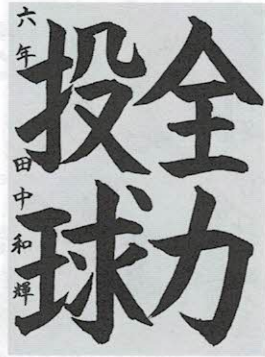 全力
投球
六年 田中和輝